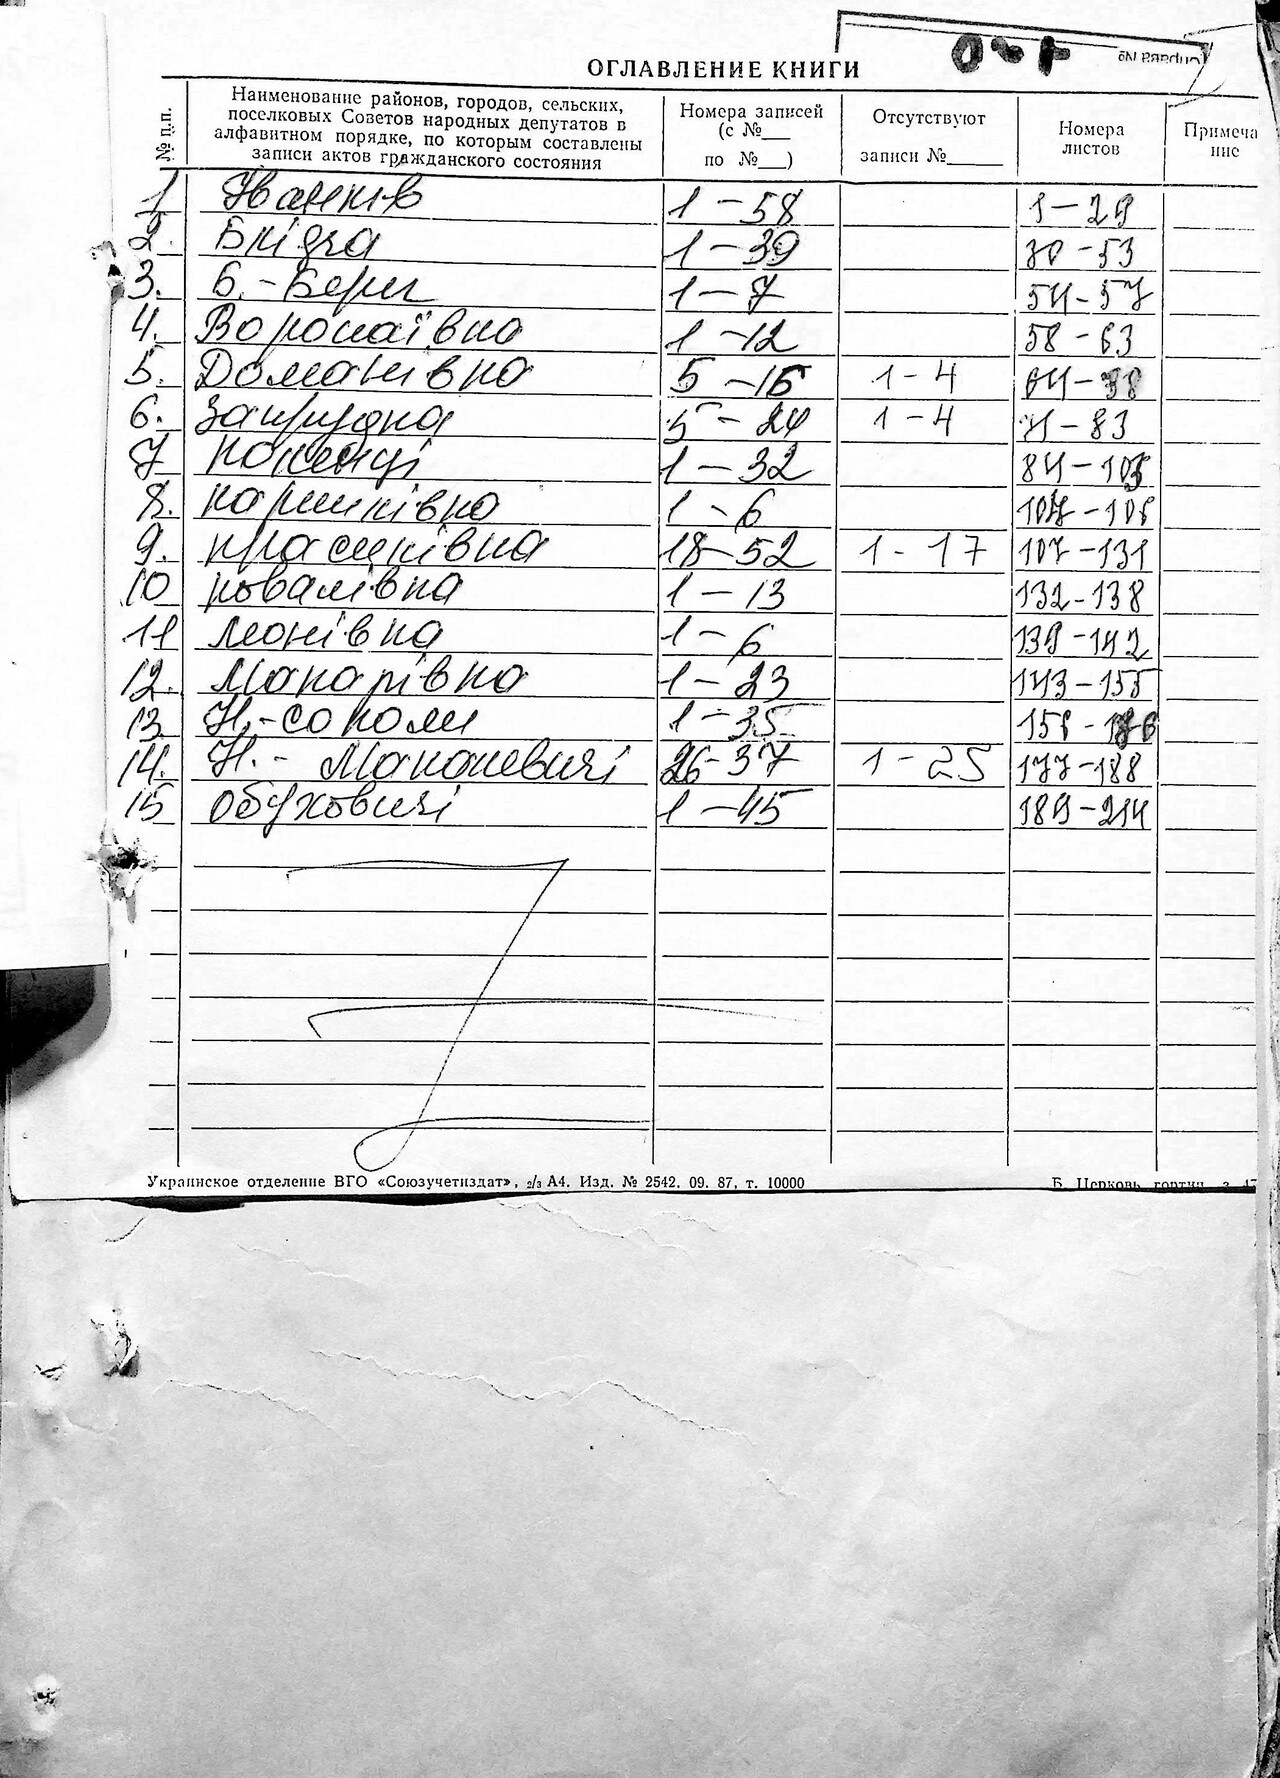 ОГЛАВЛЕНИЕ КНИГИ
Справа №
№ п.п.
Наименование районов, городов, сельских,
поселковых Советов народных депутатов в
алфавитном порядке, по которым составлены
записи актов гражданского состояния
Номера записей
(с №___
по №___)
Отсутствуют
записи №______
Номера
листов
Примеча
ние
1 Іванків 1-58 1-29
2. Блідча 1-39 30-53
3. Б.-Берег 1-7 54-57
4. Воропаївка 1-12 58-63
5. Доманівка 5-15 1-4
6. Запрудка 5-24 1-4 71-83
7 1-32
8. 1-6
9. красилівка 18-52 1-17 107-131
10 ковалівка 1-13 132-138
11 леонівка 1-6 139-142
12. Макарівка 1-23 143-155
13. Н.-соколи 1-35
14. Н.-Макалевичі 26-37 1-25 177-188
15 обуховичі 1-45 189-214
Украинское отделение ВГО «Союзучетиздат», 2/3 А4. Изд. № 2542. 09. 87. т. 10000
Б. Церковь,